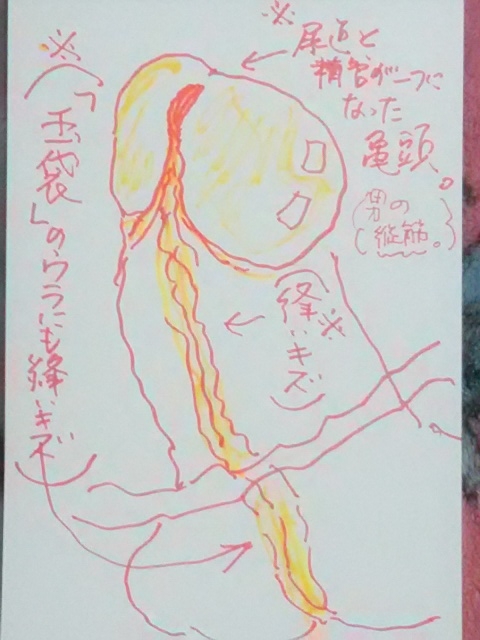 ※
尿道と
精管が一つに
なった
亀頭。
(男の
縦筋。)
※
(「玉袋」のウラにも縫いキズ)
(縫いキズ)
※